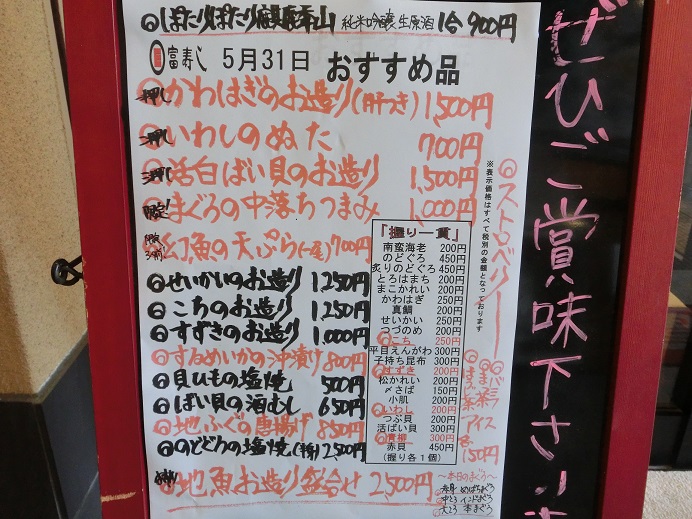 ぽたりぽたり麒麟山 純米吟醸生原酒 1合 900円
富寿し 5月31日 おすすめ品
押し かわはぎのお造り(肝つき) 1,500円
いわしのぬた 700円
活白ばい貝のお造り 1,500円
限定! まぐろの中落ちつまみ 1,000円
幻魚の天ぷら(一尾) 700円
せいかいのお造り 1,250円
こちのお造り 1,250円
すずきのお造り 1,000円
するめいかの沖漬け 800円
貝ひもの塩焼 500円
ばい貝の酒むし 650円
地ふぐの唐揚げ 850円
のどぐろの塩焼 2,500円
地魚お造り盛合せ 2,500円
「握り一貫」
南蛮海老 200円
のどぐろ 450円
炙りのどぐろ 450円
とろはまち 200円
まこかれい 200円
かわはぎ 250円
真鯛 200円
せいかい 250円
つづめ 200円
こち 250円
平目えんがわ 300円
子持ち昆布 300円
すずき 200円
松かれい 200円
〆さば 150円
小肌 200円
いわし 200円
つぶ貝 200円
活ばい貝 300円
青柳 300円
赤貝 450円
(握り各1個)
※表示価格はすべて税別の金額となっております
ストロベリー
バニラ
まっ茶
ほうじ茶
アイス
各150円
～本日のまぐろ～
赤身 めばちまぐろ
中とろ インドまぐろ
大とろ 本まぐろ
ぜひご賞味下さい